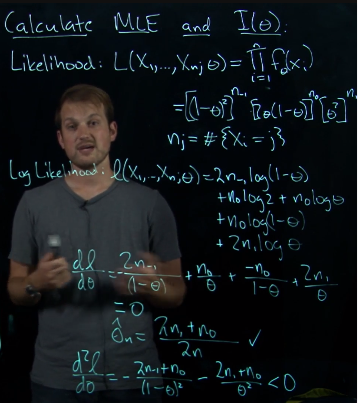 Calculate MLE and I(θ):
Likelihood: L(X₁,...,Xₙ;θ) = ∏ᵢ₌₁ⁿ f_θ(xᵢ)
= [(1-θ)²]^n₋₁ [2θ(1-θ)]^n₀ [θ²]^n₁
nⱼ = #{Xᵢ = j}
Log Likelihood: ℓ(X₁,...,Xₙ;θ) = 2n₋₁ log(1-θ)
+ n₀ log2 + n₀ logθ
+ n₀ log(1-θ)
+ 2n₁ log θ
dℓ/dθ = -2n₋₁/(1-θ) + n₀/θ + -n₀/1-θ + 2n₁/θ
= 0
θ̂ₙ = 2n₁ + n₀/2n ✓
d²ℓ/dθ = - 2n₋₁+n₀/(1-θ)² - 2n₁+n₀/θ² < 0